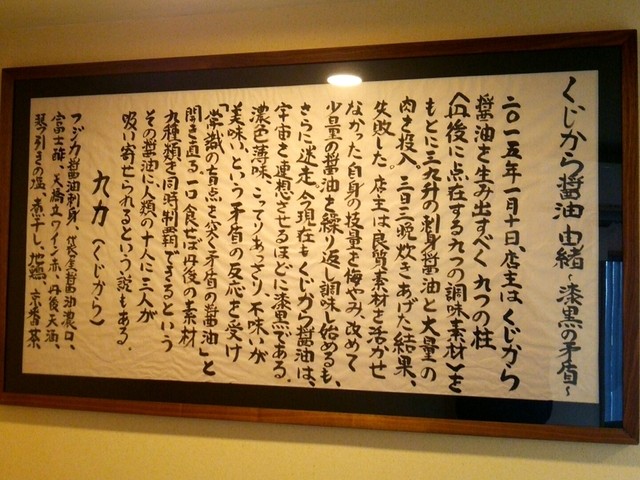 くじから醤油 由緒 〜漆黒の矛盾〜
二〇一五年一月十日、店主は くじから
醤油を生み出すべく 九つの柱、
(丹後に点在する九つの調味素材)を
もとに三九升の刺身醤油と大量の
肉を投入。三日三晩炊きあげた結果、
失敗した。店主は良質素材を活かせ
なかった自身の技量を悔やみ、改めて
少量の醤油を繰り返し調味し始めるも、
さらに迷走。今現在もくじから醤油は、
宇宙を連想させるほどに漆黒である。
濃色薄味、こってりあっさり、不味いが
美味い、という矛盾の反応を受け
「常識の盲点を突く矛盾の醤油」と
開き直る。一口食せば丹後の食素材
九種類を同時制覇できるという
その醤油に人類の十人に三人が
吸い寄せられるという説もある。
九力(くじから)
フジカ醤油刺身、醤油濃口、
富士酢、天橋立ワイン赤、丹後天酒、
琴引きの塩、煮干し、地鶏、京番茶